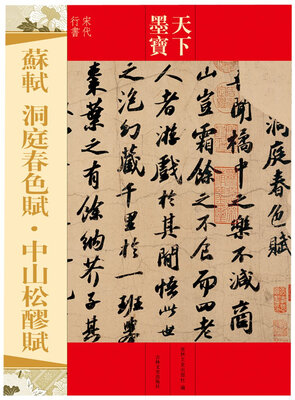 天下
墨寶
宋代
行書
蘇軾 洞庭春色賦·中山松醪賦
洞庭春色賦
吾聞橘中之樂不減商
山豈霜餘之不食而四老
人者游戲於其間悟此世
之泡幻藏千里於一班舉
棗葉之有餘納芥子其
吉林文史出版社 編
吉林文史出版社